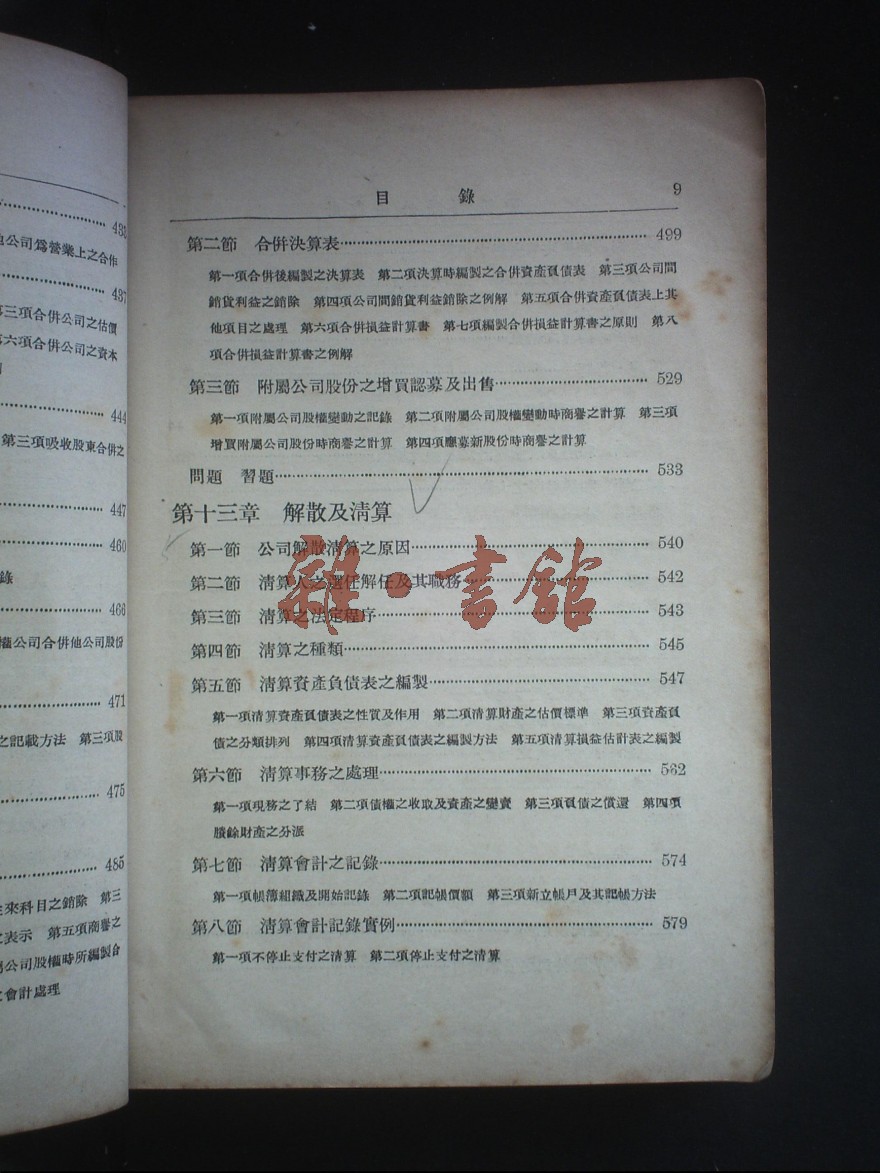 483
公司爲營業上之合作
437
第三項合併公司之估價
第六項合併公司之資本
444
第三項吸收股東合併之
447
460
錄
466
權公司合併他公司股份
471
之記載方法　第三項股
475
485
來科目之銷除　第三
表示　第五項商譽之
公司股權時所編製合
會計處理
目　錄　9
第二節　合併決算表 499
第一項合併後編製之決算表　第二項決算時編製之合併資產負債表　第三項公司間
銷貨利益之銷除　第四項公司間銷貨利益銷除之例解　第五項合併資產負債表上其
他項目之處理　第六項合併損益計算書　第七項編製合併損益計算書之原則　第八
項合併損益計算書之例解
第三節　附屬公司股份之增買認募及出售 529
第一項附屬公司股權變動之記錄　第二項附屬公司股權變動時商譽之計算　第三項
增買附屬公司股份時商譽之計算　第四項應募新股份時商譽之計算
問題　習題 533
第十三章　解散及清算
第一節　公司解散清算之原因 540
第二節　清算人之選任解任及其職務 542
第三節　清算之法定程序 543
第四節　清算之種類 545
第五節　清算資產負債表之編製 547
第一項清算資產負債表之性質及作用　第二項清算財產之估價標準　第三項資產負
債之分類排列　第四項清算資產負債表之編製方法　第五項清算損益估計表之編製
第六節　清算事務之處理 562
第一項現務之了結　第二項債權之收取及資產之變賣　第三項負債之償還　第四項
賸餘財產之分派
第七節　清算會計之記錄 574
第一項帳簿組織及開始記錄　第二項記帳價額　第三項新立帳戶及其記帳方法
第八節　清算會計記錄實例 579
第一項不停止支付之清算　第二項停止支付之清算
雜·書館